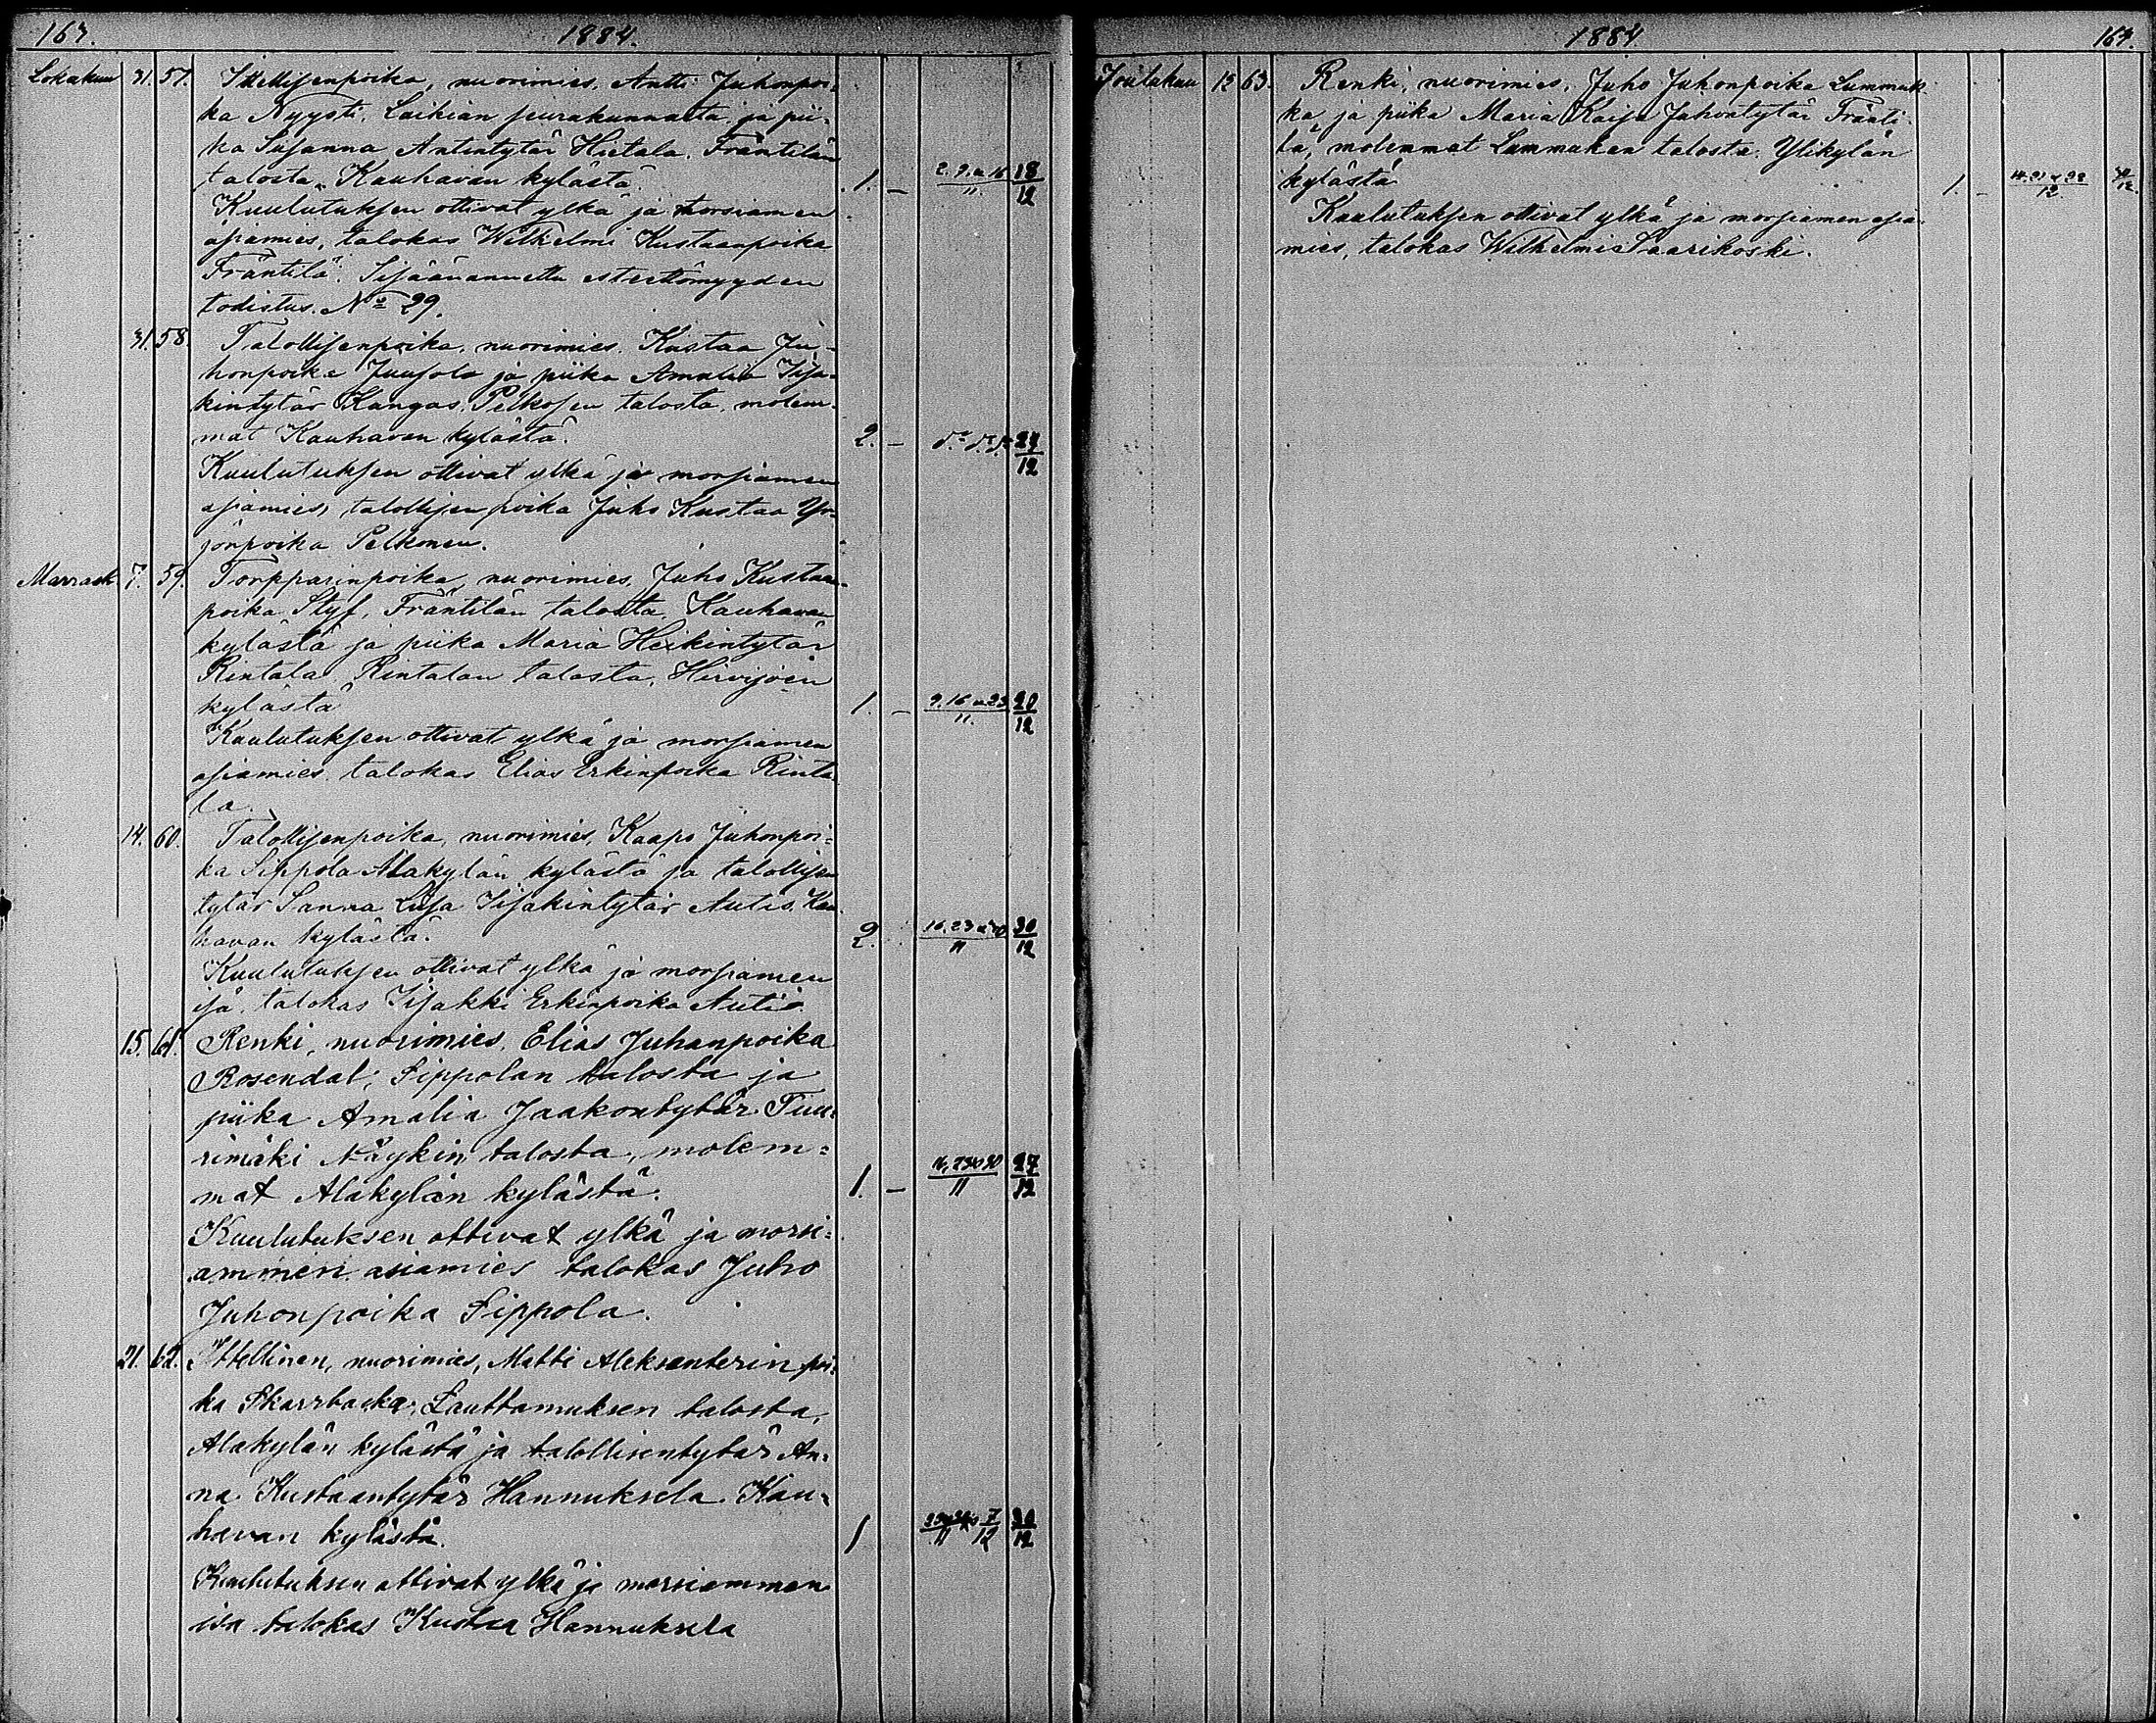 167. 1884.
Lokakuu 31. 57. Itellisenpoika, nuorimies, Antti Juhonpoi-
ka Nyysti, Laihian seurakunnasta, ja pii-
ka Susanna Antintytär Hietala, Fräntilän
talosta, Kauhavan kylästä. 1. – 2. 9. a 16/11. 18/12
Kuulutuksen ottivat ylkä ja morsiamen
asiamies, talokas Wilhelmi Kustaanpoika
Fräntilä. Sisäänannettu esteettömyyden
todistus. No 29.
31. 58. Talollisenpoika, nuorimies, Kustaa Ju-
honpoika Juusola ja piika Amalia Iisa-
kintytär Kangas, Pelkosen talosta, molem-
mat Kauhavan kylästä. 2. – do do do 27/12
Kuulutuksen ottivat ylkä ja morsiamen
asiamies, talollisen poika Juho Kustaa Yr-
jönpoika Pelkonen.
Marrask. 7. 59. Torpparinpoika, nuorimies, Juho Kustaan-
poika Styf, Fräntilän talosta, Kauhavan
kylästä ja piika Maria Heikintytär
Rintala, Rintalan talosta, Hirvijoen
kylästä 1. – 9. 16 a 23/11. 20/12
Kuulutuksen ottivat ylkä ja morsiamen
asiamies talokas Elias Erkinpoika Rinta-
la.
14. 60. Talollisenpoika, nuorimies, Kaapo Juhonpoi-
ka Sippola Alakylän kylästä ja talollisen
tytär Sanna Liisa Iisakintytär Autio, Kau-
havan kylästä. 2. 16. 23 a 30/11 30/12
Kuulutuksen ottivat ylkä ja morsiamen
isä, talokas Iisakki Erkinpoika Autio.
15. 61. Renki, nuorimies, Elias Juhanpoika
Rosendal, Sippolan talosta ja
piika Amalia Jaakontytär Tuu-
rimäki Näykin talosta, molem-
mat Alakylän kylästä. 1. – 16, 23 a 30/11 27/12
Kuulutuksen ottivat ylkä ja morsi-
ammen asiamies talokas Juho
Juhonpoika Sippola.
21. 62. Ittellinen, nuorimies, Matti Aleksanterin poi-
ka Skarrbacka, Lauttamuksen talosta,
Alakylän kylästä ja talollisentytär An-
na Kustaantytär Hannuksela Kau-
havan kylästä. 1 7/12 30/12
Kuulutuksen ottivat ylkä ja morsiammen
isä talokas Kustaa Hannuksela
1884 167.
Joulukuu 12 63. Renki, nuorimies, Juho Juhonpoika Lummuk-
ka ja piika Maria Kaisa Juhontytär Fränti-
lä, molemmat Lummukan talosta, Ylikylän
kylästä 1. – 14. 21 a 28/12.
Kuulutuksen ottivat ylkä ja morsiamen asia-
mies, talokas Wilhelmi Saarikoski.